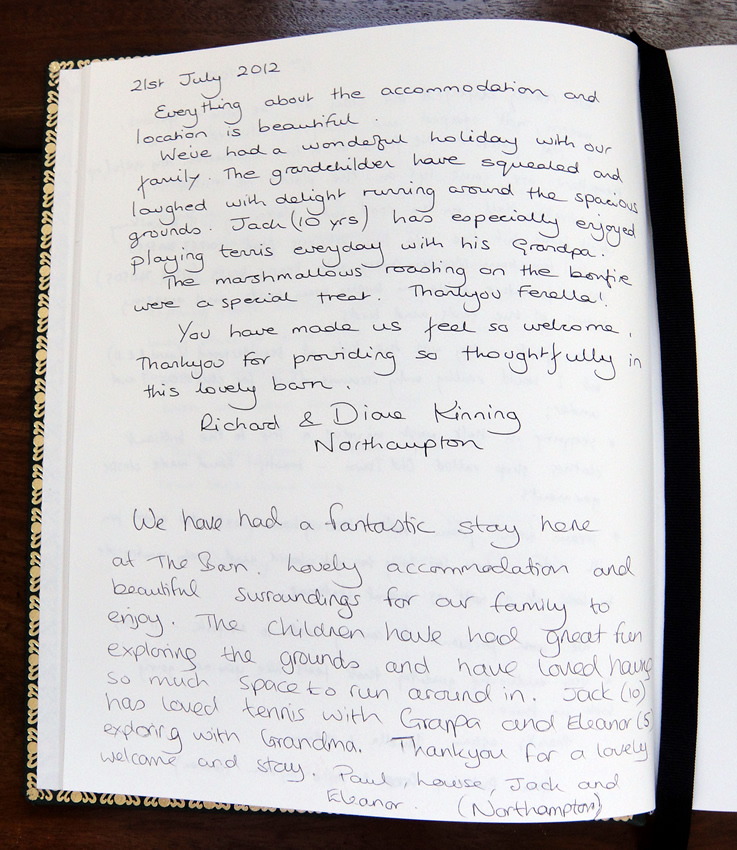 21st July 2012
Everything about the accommodation and
location is beautiful.
We've had a wonderful holiday with our
family. The grandchildren have squealed and
laughed with delight running around the spacious
grounds. Jack (10 yrs) has especially enjoyed
playing tennis everyday with his Grandpa.
The marshmallows roasting on the bonfire
were a special treat. Thankyou Ferella!
You have made us feel so welcome.
Thankyou for providing so thoughtfully in
this lovely barn.
Richard & Diane Kinning
Northampton
We have had a fantastic stay here
at The Barn. Lovely accommodation and
beautiful surroundings for our family to
enjoy. The children have had great fun
exploring the grounds and have loved having
so much space to run around in. Jack (10)
has loved tennis with Grampa and Eleanor (5)
exploring with Grandma. Thankyou for a lovely
welcome and stay. Paul, Louise, Jack and
Eleanor. (Northampton)